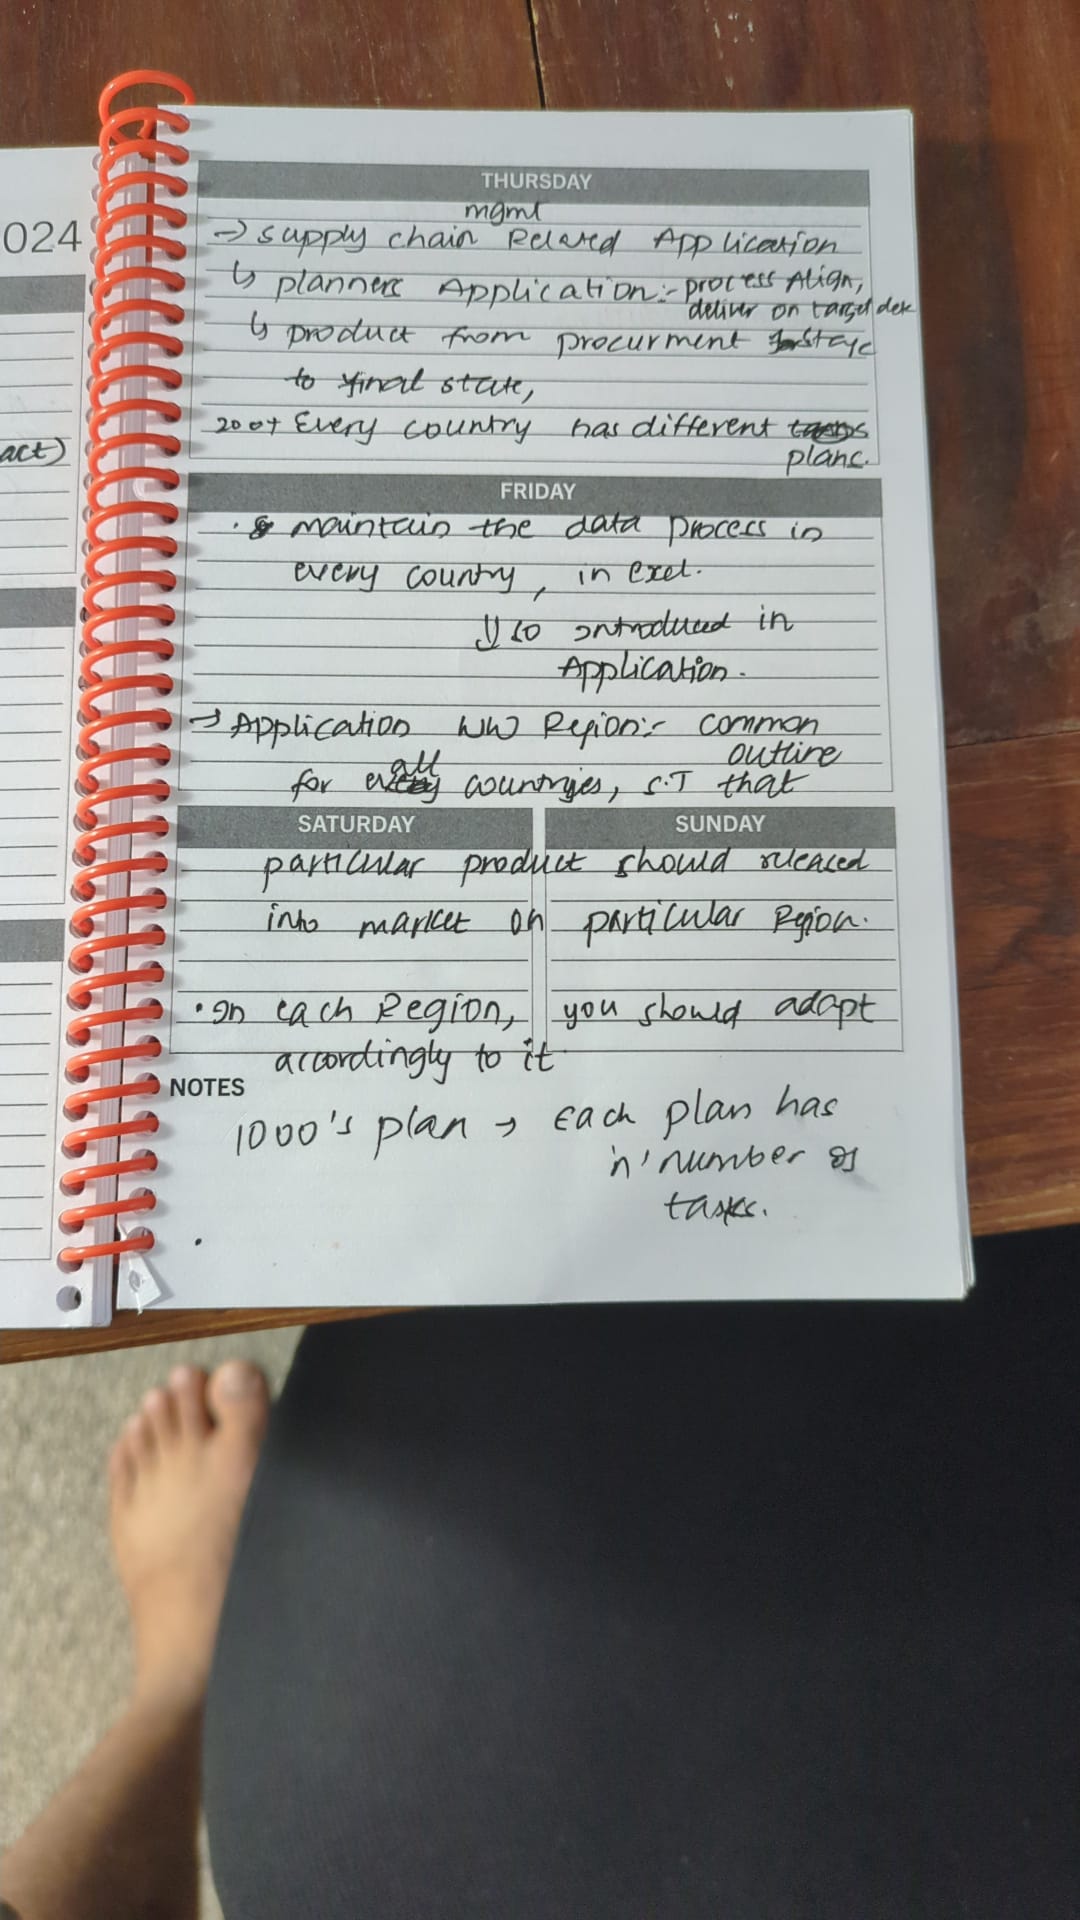 024
act)
THURSDAY
mgmt
→ supply chain Related Application
↳ planners Application:- process Align,
deliver on target date
↳ product from procurment stage
to final state,
200+ Every country has different
plans.
FRIDAY
. maintain the data process in
every country, in excel.
⇓ so introduced in
Application.
→ Application WW Region:- common
outline
for all countries, S.T that
SATURDAY SUNDAY
particular product should released
into market on particular Region.
. In each Region, you should adapt
accordingly to it
NOTES
1000's plan → Each plan has
'n' number of
tasks.